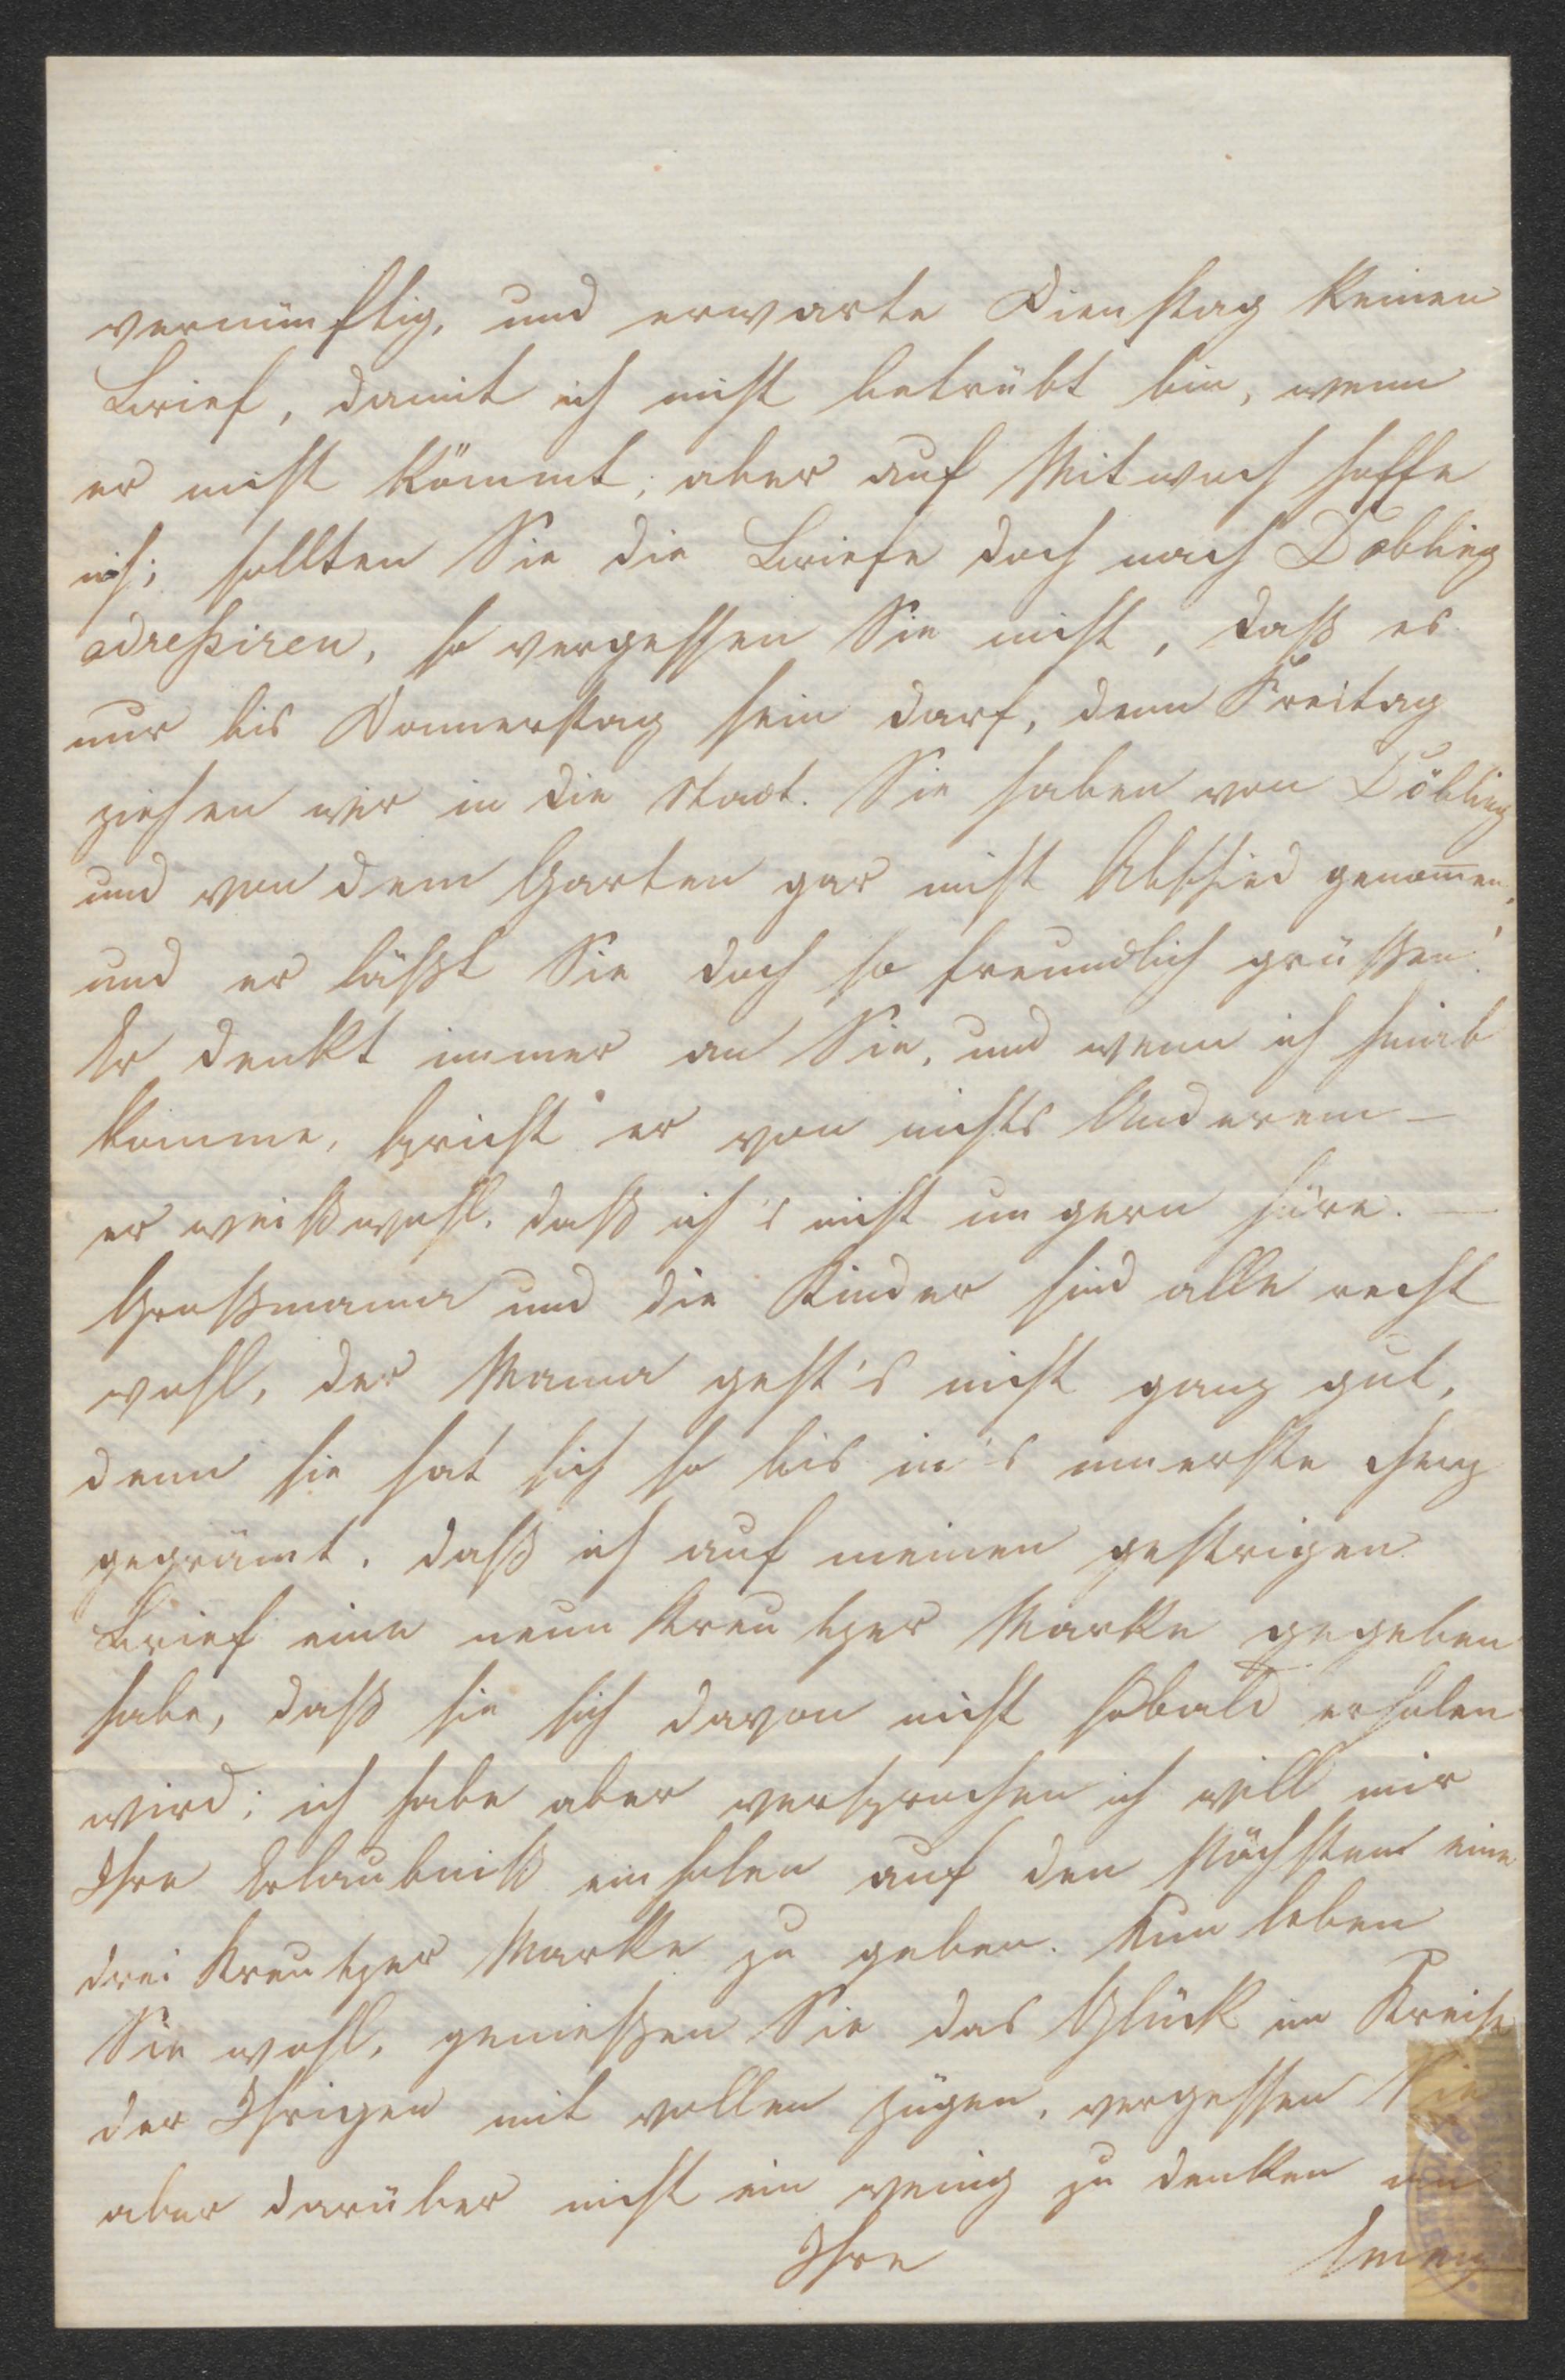 vernünftig, und erwarte Dienstag keinen
Brief, damit ich nicht betrübt bin, wenn
er nicht kömmt; aber auf Mitwoch hoffe
ich; sollten Sie die Briefe doch nach Döbling
adreßiren, so vergessen Sie nicht, daß es
nur bis Donnerstag sein darf, denn Freitag
ziehen wir in die Stadt. Sie haben von Döbling
und von dem Garten gar nicht Abschied genom̅en,
und er läßt Sie doch so freundlich grüßen!
Er denkt immer an Sie, und wenn ich hinab
komme, spricht er von nichts Anderem –
er weiß wohl, daß ich's nicht ungern höre. –
Großmama und die Kinder sind alle recht
wohl, der Mama geht's nicht ganz gut,
denn sie hat sich so bis in's innerste Herz
gegrämt, daß ich auf meinen gestrigen
Brief eine neun Kreutzer Marke gegeben
habe, daß sie sich davon nicht sobald erholen
wird; ich habe aber versprochen ich will mir
Ihre Erlaubniß einholen auf den Nächsten eine
drei Kreutzer Marke zu geben. Nun leben
Sie wohl, genießen Sie das Glück im Kreise
der Ihrigen mit vollen Zügen, vergessen Sie
aber darüber nicht ein wenig zu denken an
Ihre